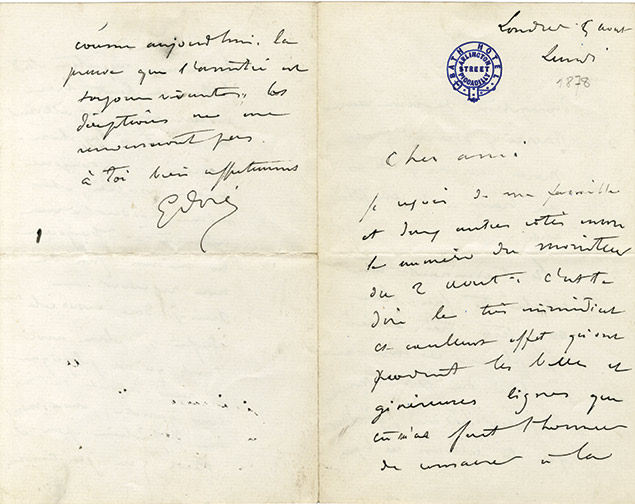 Londres 5 août
Lundi
1878
BATH HOTEL
ARLINGTON STREET PICCADILLY
Cher ami
Je reçois de ma famille
et d'autres côtés
le numéro du moniteur
du 2 août : c'est te
dire le très immédiat
et excellent effet qu'ont
produit les belles et
généreuses lignes que
tu m'as fait l'honneur
de consacrer à la
comme aujourd'hui, la
preuve que l'amitié est
toujours vivante, les
déceptions ne me
pas
à toi bien affectueux
G Doré